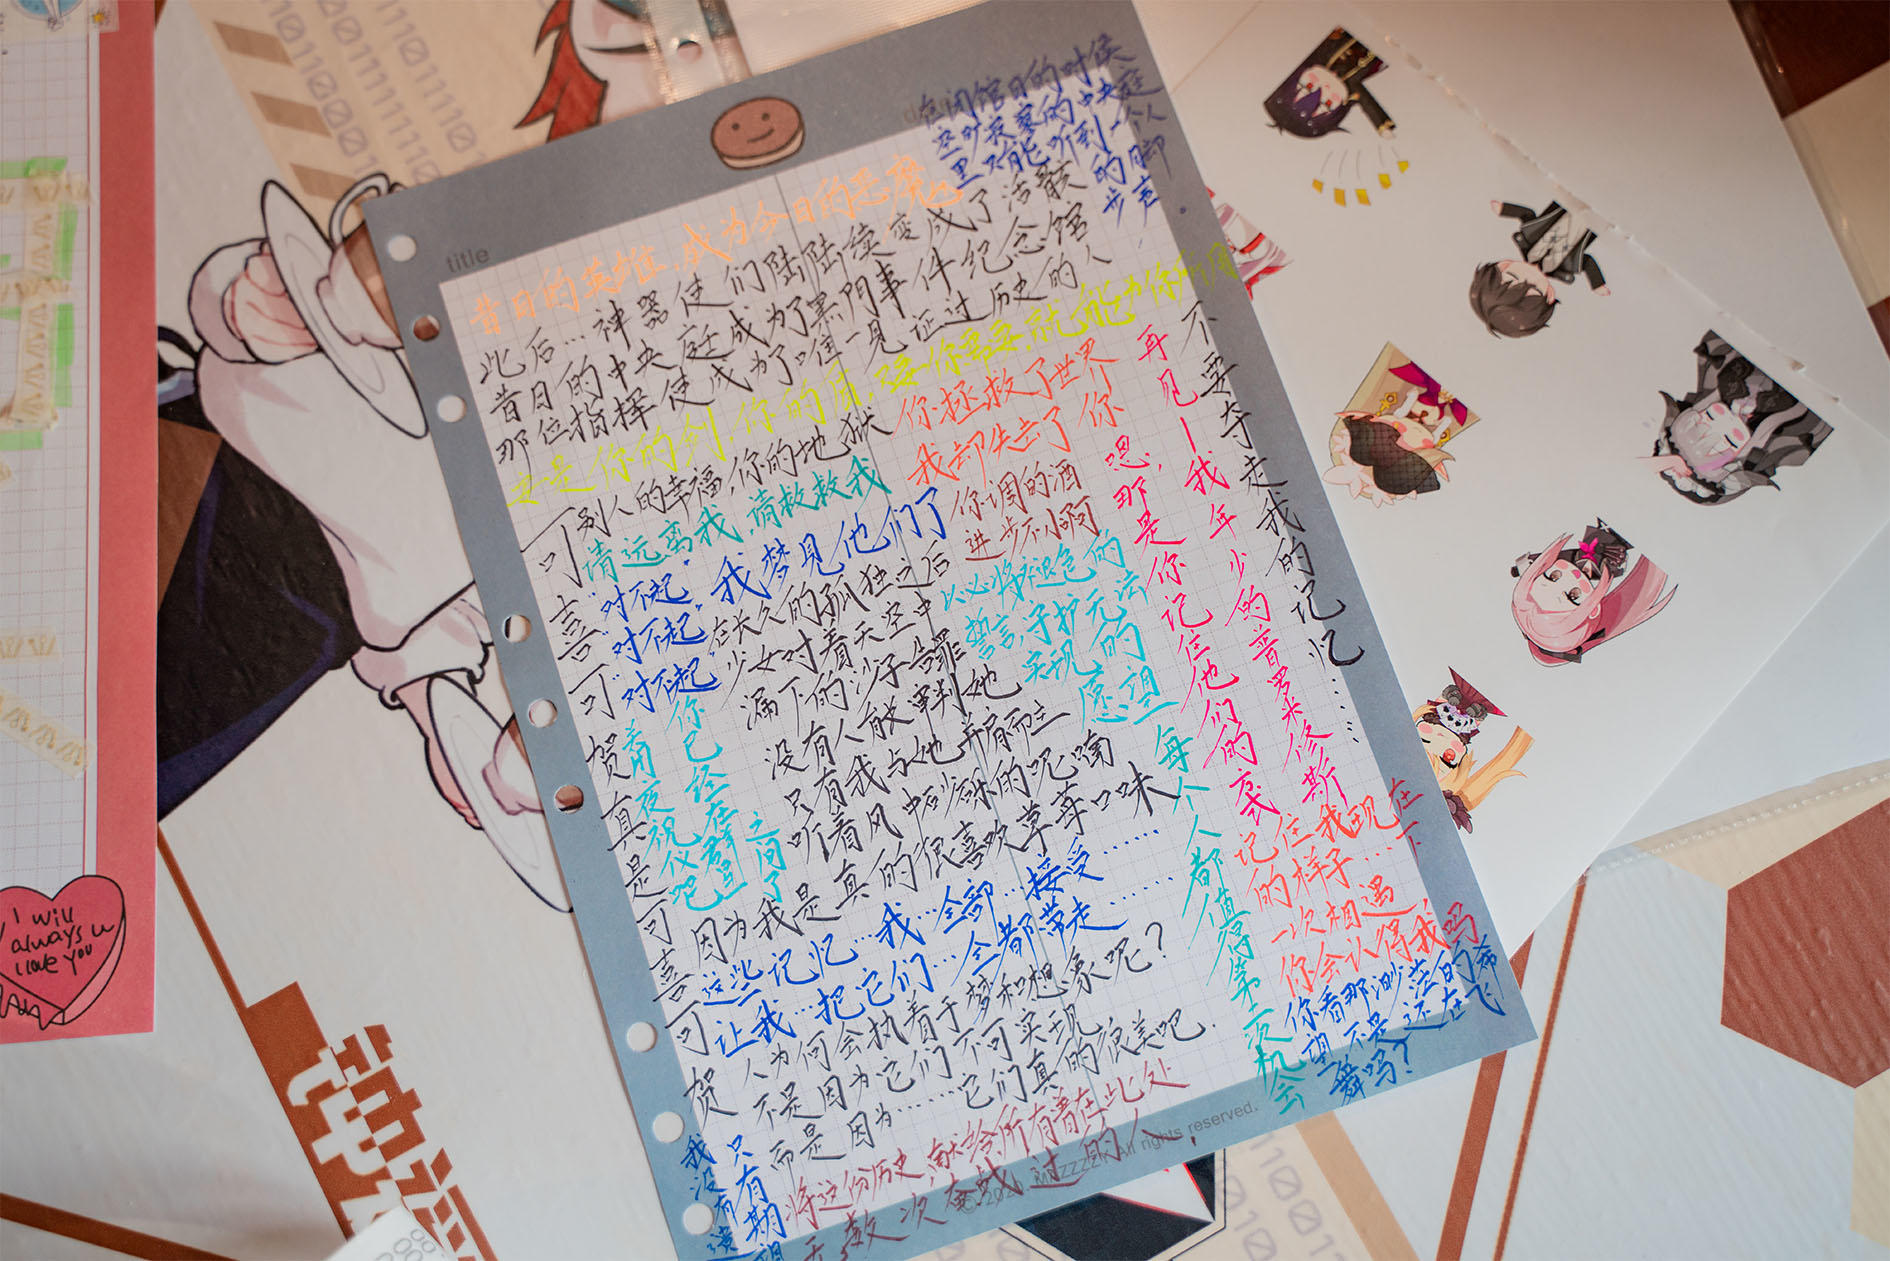 title
在闭馆日的时候
空旷寂寥的中央庭
里只能听到一个人
的脚
步声。
昔日的英雄,成为今日的恶魔
此后…神器使们陆陆续续变成了活骸
昔日的中央庭成为了黑门事件纪念馆
那位指挥使成为了唯一见证过历史的人
你的剑,你的盾,只要你需要,就能为你所用
别人的幸福,你的地狱
你拯救了世界
我却失去了你
请远离我,请救救我
“对不起”
“对不起”
“对不起”
我梦见他们了
你调的酒
进步不小啊
在长久的孤独之后
少女对着天空中
漏下的沙子告罪
没有人能审判她
只有我与她并肩而立
听着风中砂砾的呢喃
以必将褪色的
誓言,守护无法
实现的
愿望
可喜可贺真是可喜可贺
你已经在群星之间了
着用夜视仪吧
因为我是真的很喜欢草莓口味
这些记忆…我…全部…接受……
让我…把它们…全都带走……
人为何会执着于梦和想象呢?
不是因为它们不可实现
而是因为……它们真的很美吧.
将这份历史,献给所有曾在此处
无数次奋战过的人.
我没有
只有期望
再见—我年少的普罗米修斯
不要夺走我的记忆……
嗯,那是你记住他们的方式
每个人都值得第二次机会
记住我现在
的样子…下
一次相遇,
你会认得我吗
你看那渺茫的希
望,不是还在飞
舞吗?
All rights reserved.
I will
always u
love you